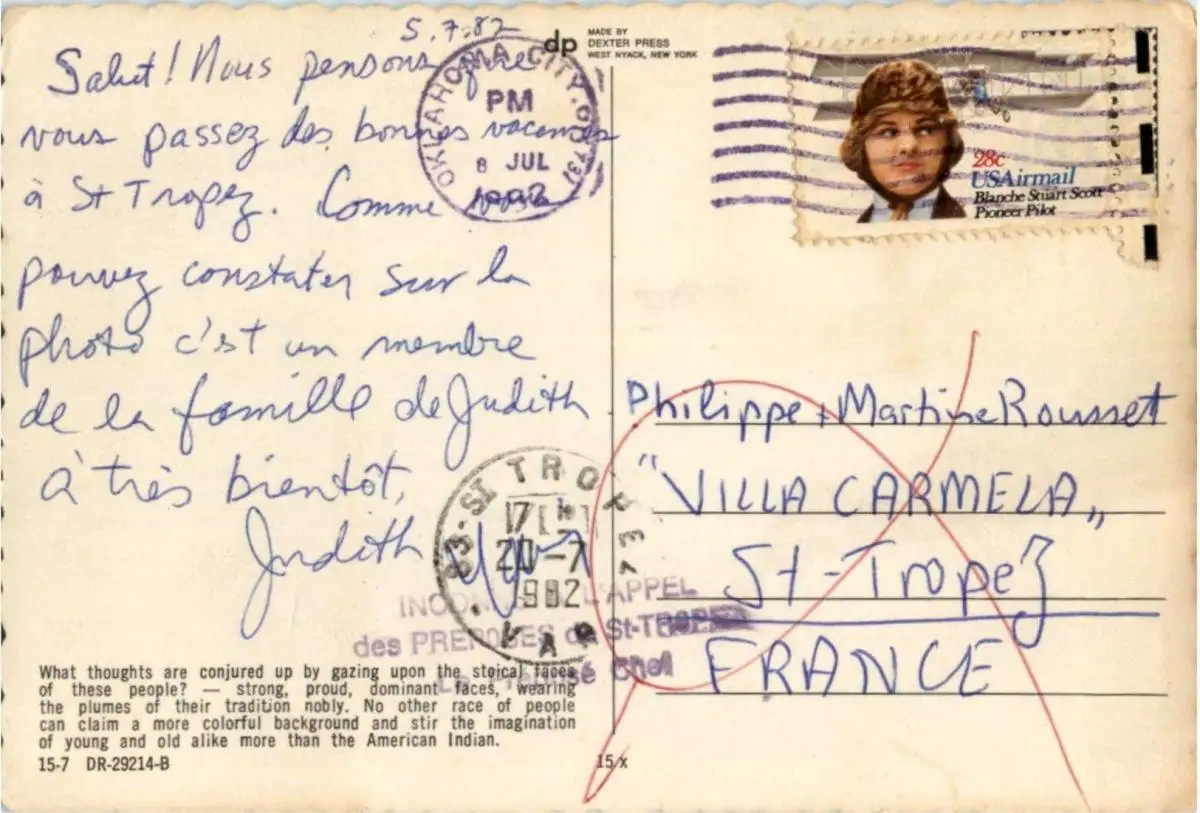 5.7.82
Salut! Nous pensons que
vous passez des bonnes vacances
à St Tropez. Comme vous
pouvez constater sur la
photo c'est un membre
de la famille de Judith
à très bientôt,
Judith
What thoughts are conjured up by gazing upon the stoical faces
of these people? — strong, proud, dominant faces, wearing
the plumes of their tradition nobly. No other race of people
can claim a more colorful background and stir the imagination
of young and old alike more than the American Indian.
15-7 DR-29214-B
dp
MADE BY
DEXTER PRESS
WEST NYACK, NEW YORK
OKLAHOMA CITY, O
PM
8 JUL
1982
28c
USAirmail
Blanche Stuart Scott
Pioneer Pilot
Philippe + Martine Rousset
"VILLA CARMELA"
St-Tropez
FRANCE
83-ST TROPEZ
17
20-7
1982
VAR
L'APPEL
des PREPOSES de St-TROPEZ
Chef
15 x